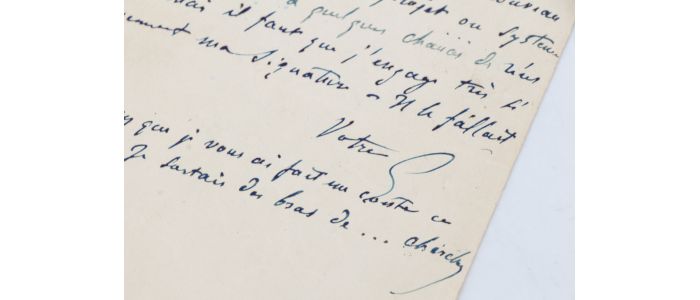 projet ou système
à quelques chances de
mais il faut que j'engage très
ma signature – Il le fallait
Votre
que j vous ai fait un conte ce
Je sortais des bras de ... cherchez